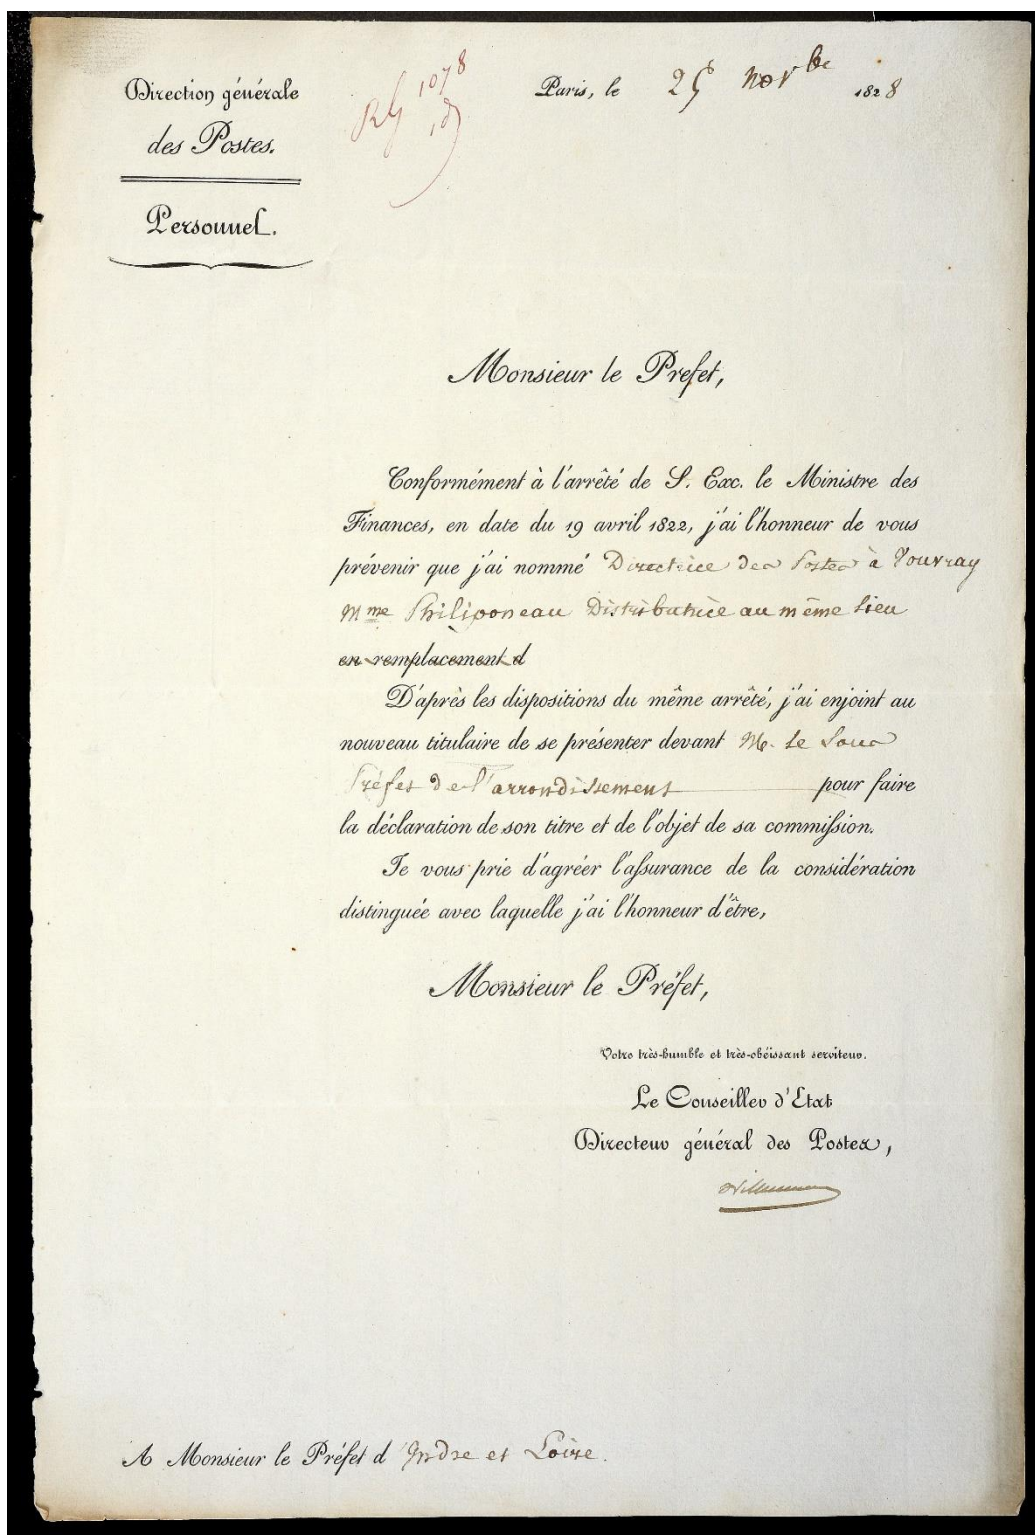 Direction générale
des Postes.
Personnel.
RG 1078
Paris, le 25 novbre 1828
Monsieur le Prefet,
Conformément à l'arrêté de S. Exc. le Ministre des
Finances, en date du 19 avril 1822, j'ai l'honneur de vous
prévenir que j'ai nommé Directrice des Postes à Vouvray
Mme Philiponeau Distributrice au même lieu
en remplacement d
D'après les dispositions du même arrêté, j'ai enjoint au
nouveau titulaire de se présenter devant M. le Sous
Préfet de l'arrondissement pour faire
la déclaration de son titre et de l'objet de sa commission.
Je vous prie d'agréer l'assurance de la considération
distinguée avec laquelle j'ai l'honneur d'être,
Monsieur le Préfet,
Votre très-humble et très-obéissant serviteur.
Le Conseiller d'Etat
Directeur général des Postes,
A Monsieur le Préfet d'Indre et Loire.